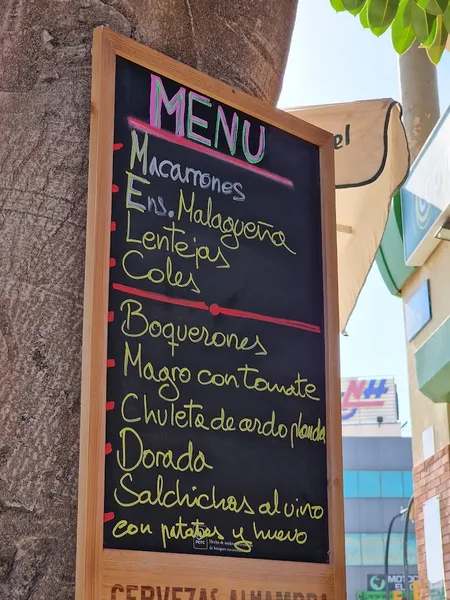 MENU
Macarrones
Ens. Malagueña
Lentejas
Coles
Boquerones
Magro con tomate
Chuleta de cerdo plancha
Dorada
Salchichas al vino
con patatas y huevo
CERVEZAS ALHAMBRA
el